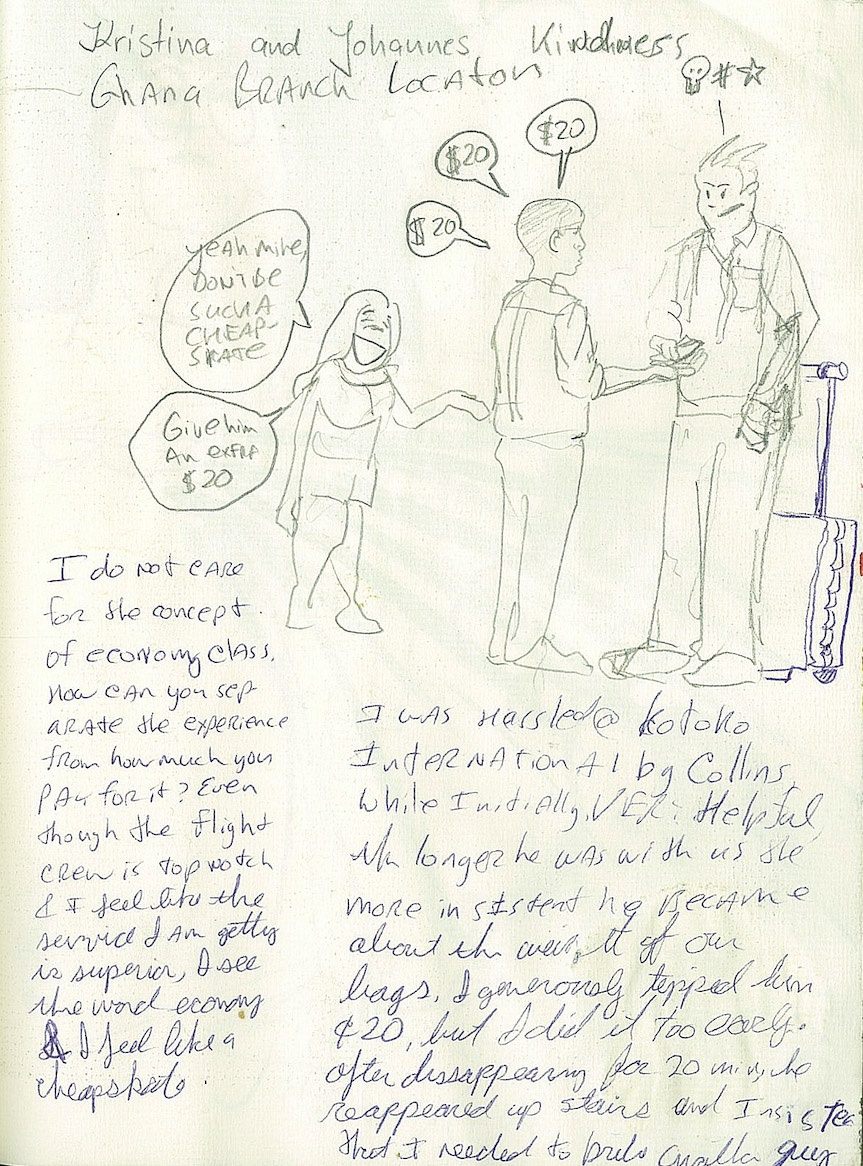 Kristina and Johannes, Kindness
Ghana Branch Location
#☆
$20
$20
$20
yeah mike,
DON'T BE
SUCH A
CHEAP-
SKATE
Give him
An extra
$20
I do not care
for the concept.
of economy class.
How can you sep-
arate the experience
from how much you
pay for it? Even
though the flight
crew is top notch
& I feel like the
service I am getting
is superior, I see
the word economy
& I feel like a
cheapskate.
I was Hassled @ Kotoko
International by Collins,
While Initially, VERY Helpful,
the longer he was with us the
more insistent he Became
about the weight of our
bags. I generously tipped him
$20, but I did it too early.
after dissappearing for 20 min, he
reappeared up stairs and Insisted
that I needed to guy